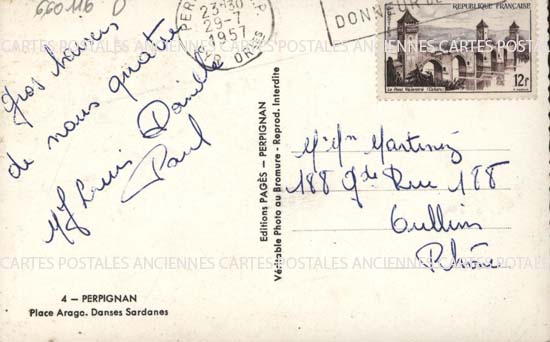 660116
PERPIGNAN
23-30
29-7
1957
P. ORIES
DONNEUR DE
REPUBLIQUE FRANÇAISE
Le Pont Valentré (Cahors)
12F
Gros baisers
de nous quatre
Louis Danielle
Paul
Editions PAGÈS — PERPIGNAN
Véritable Photo au Bromure - Reprod. Interdite
Mr Mme Martinez
188 Gde Rue 188
Oullins
Rhône
CARTES POSTALES ANCIENNES CARTES POSTALES ANCIENNES CARTES POSTALES ANCIENNES
4 — PERPIGNAN
Place Arago. Danses Sardanes